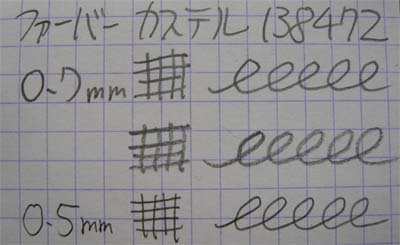 ファーバー カステル 138472
0.7mm
0.5mm